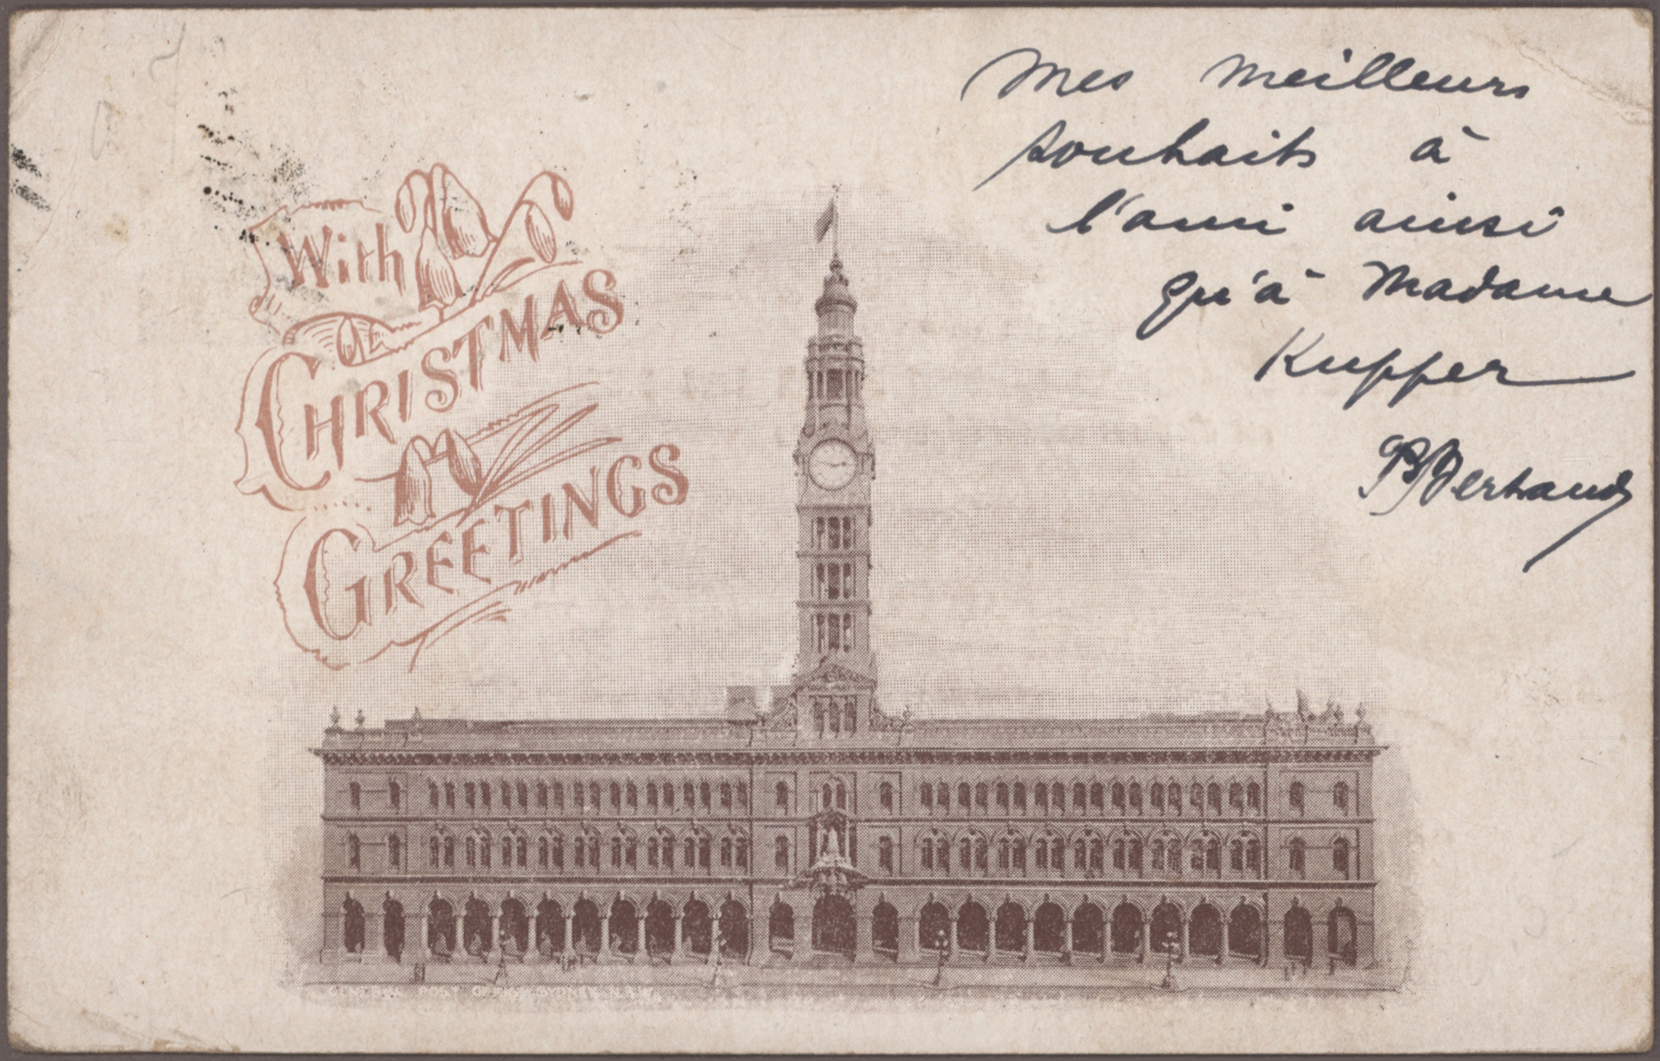 With
CHRISTMAS
GREETINGS
Mes meilleurs
souhaits à
l'ami ainsi
qu'à Madame
Kupper
GENERAL POST OFFICE SYDNEY